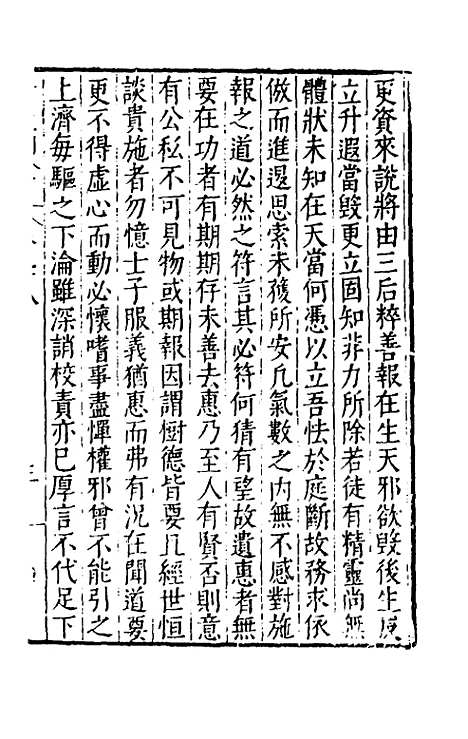 更資來說將由三后粹善報在生天邪欲毀後生反
立升遐當毀更立固知非力所除若徒有精靈尚無
體狀未知在天當何憑以立吾怯於庭斷故務求依
倣而進退思索未獲所安凡氣數之內無不感對施
報之道必然之符言其必符何猜有望故遺惠者無
要在功者有期期存未善去惠乃至人有賢否則意
有公私不可見物或期報因謂樹德皆要且經世恒
談貴施者勿憶士子服義猶惠而弗有況在聞道要
更不得虛心而動必懷嗜事盡憚權邪曾不能引之
上濟每驅之下淪雖深誚校責亦已厚言不代足下